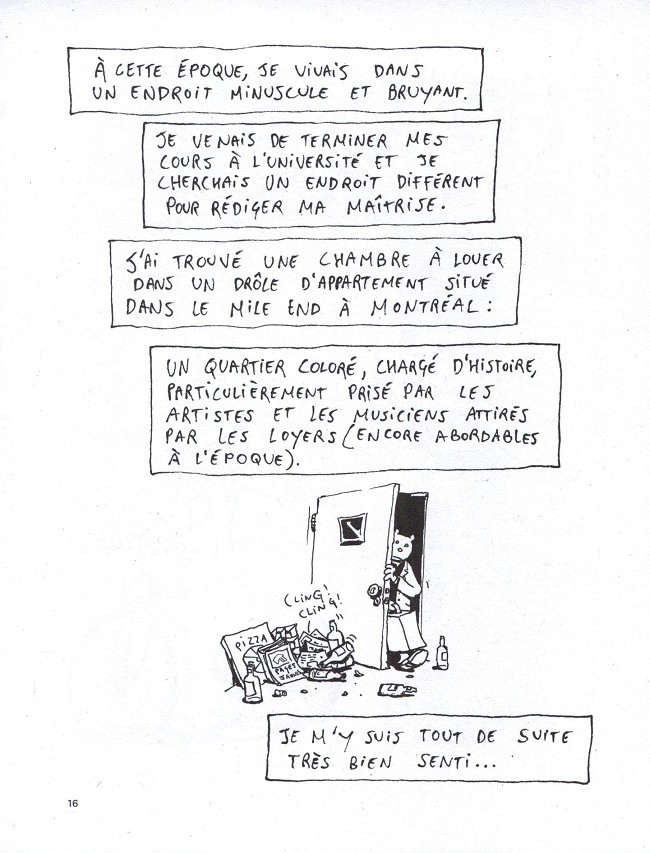 À CETTE ÉPOQUE, JE VIVAIS DANS
UN ENDROIT MINUSCULE ET BRUYANT.
JE VENAIS DE TERMINER MES
COURS À L'UNIVERSITÉ ET JE
CHERCHAIS UN ENDROIT DIFFÉRENT
POUR RÉDIGER MA MAÎTRISE.
J'AI TROUVÉ UNE CHAMBRE À LOUER
DANS UN DRÔLE D'APPARTEMENT SITUÉ
DANS LE MILE END À MONTRÉAL :
UN QUARTIER COLORÉ, CHARGÉ D'HISTOIRE,
PARTICULIÈREMENT PRISÉ PAR LES
ARTISTES ET LES MUSICIENS ATTIRÉS
PAR LES LOYERS (ENCORE ABORDABLES
À L'ÉPOQUE).
CLING!
CLING!
PIZZA
PAGES
JE M'Y SUIS TOUT DE SUITE
TRÈS BIEN SENTI...
16